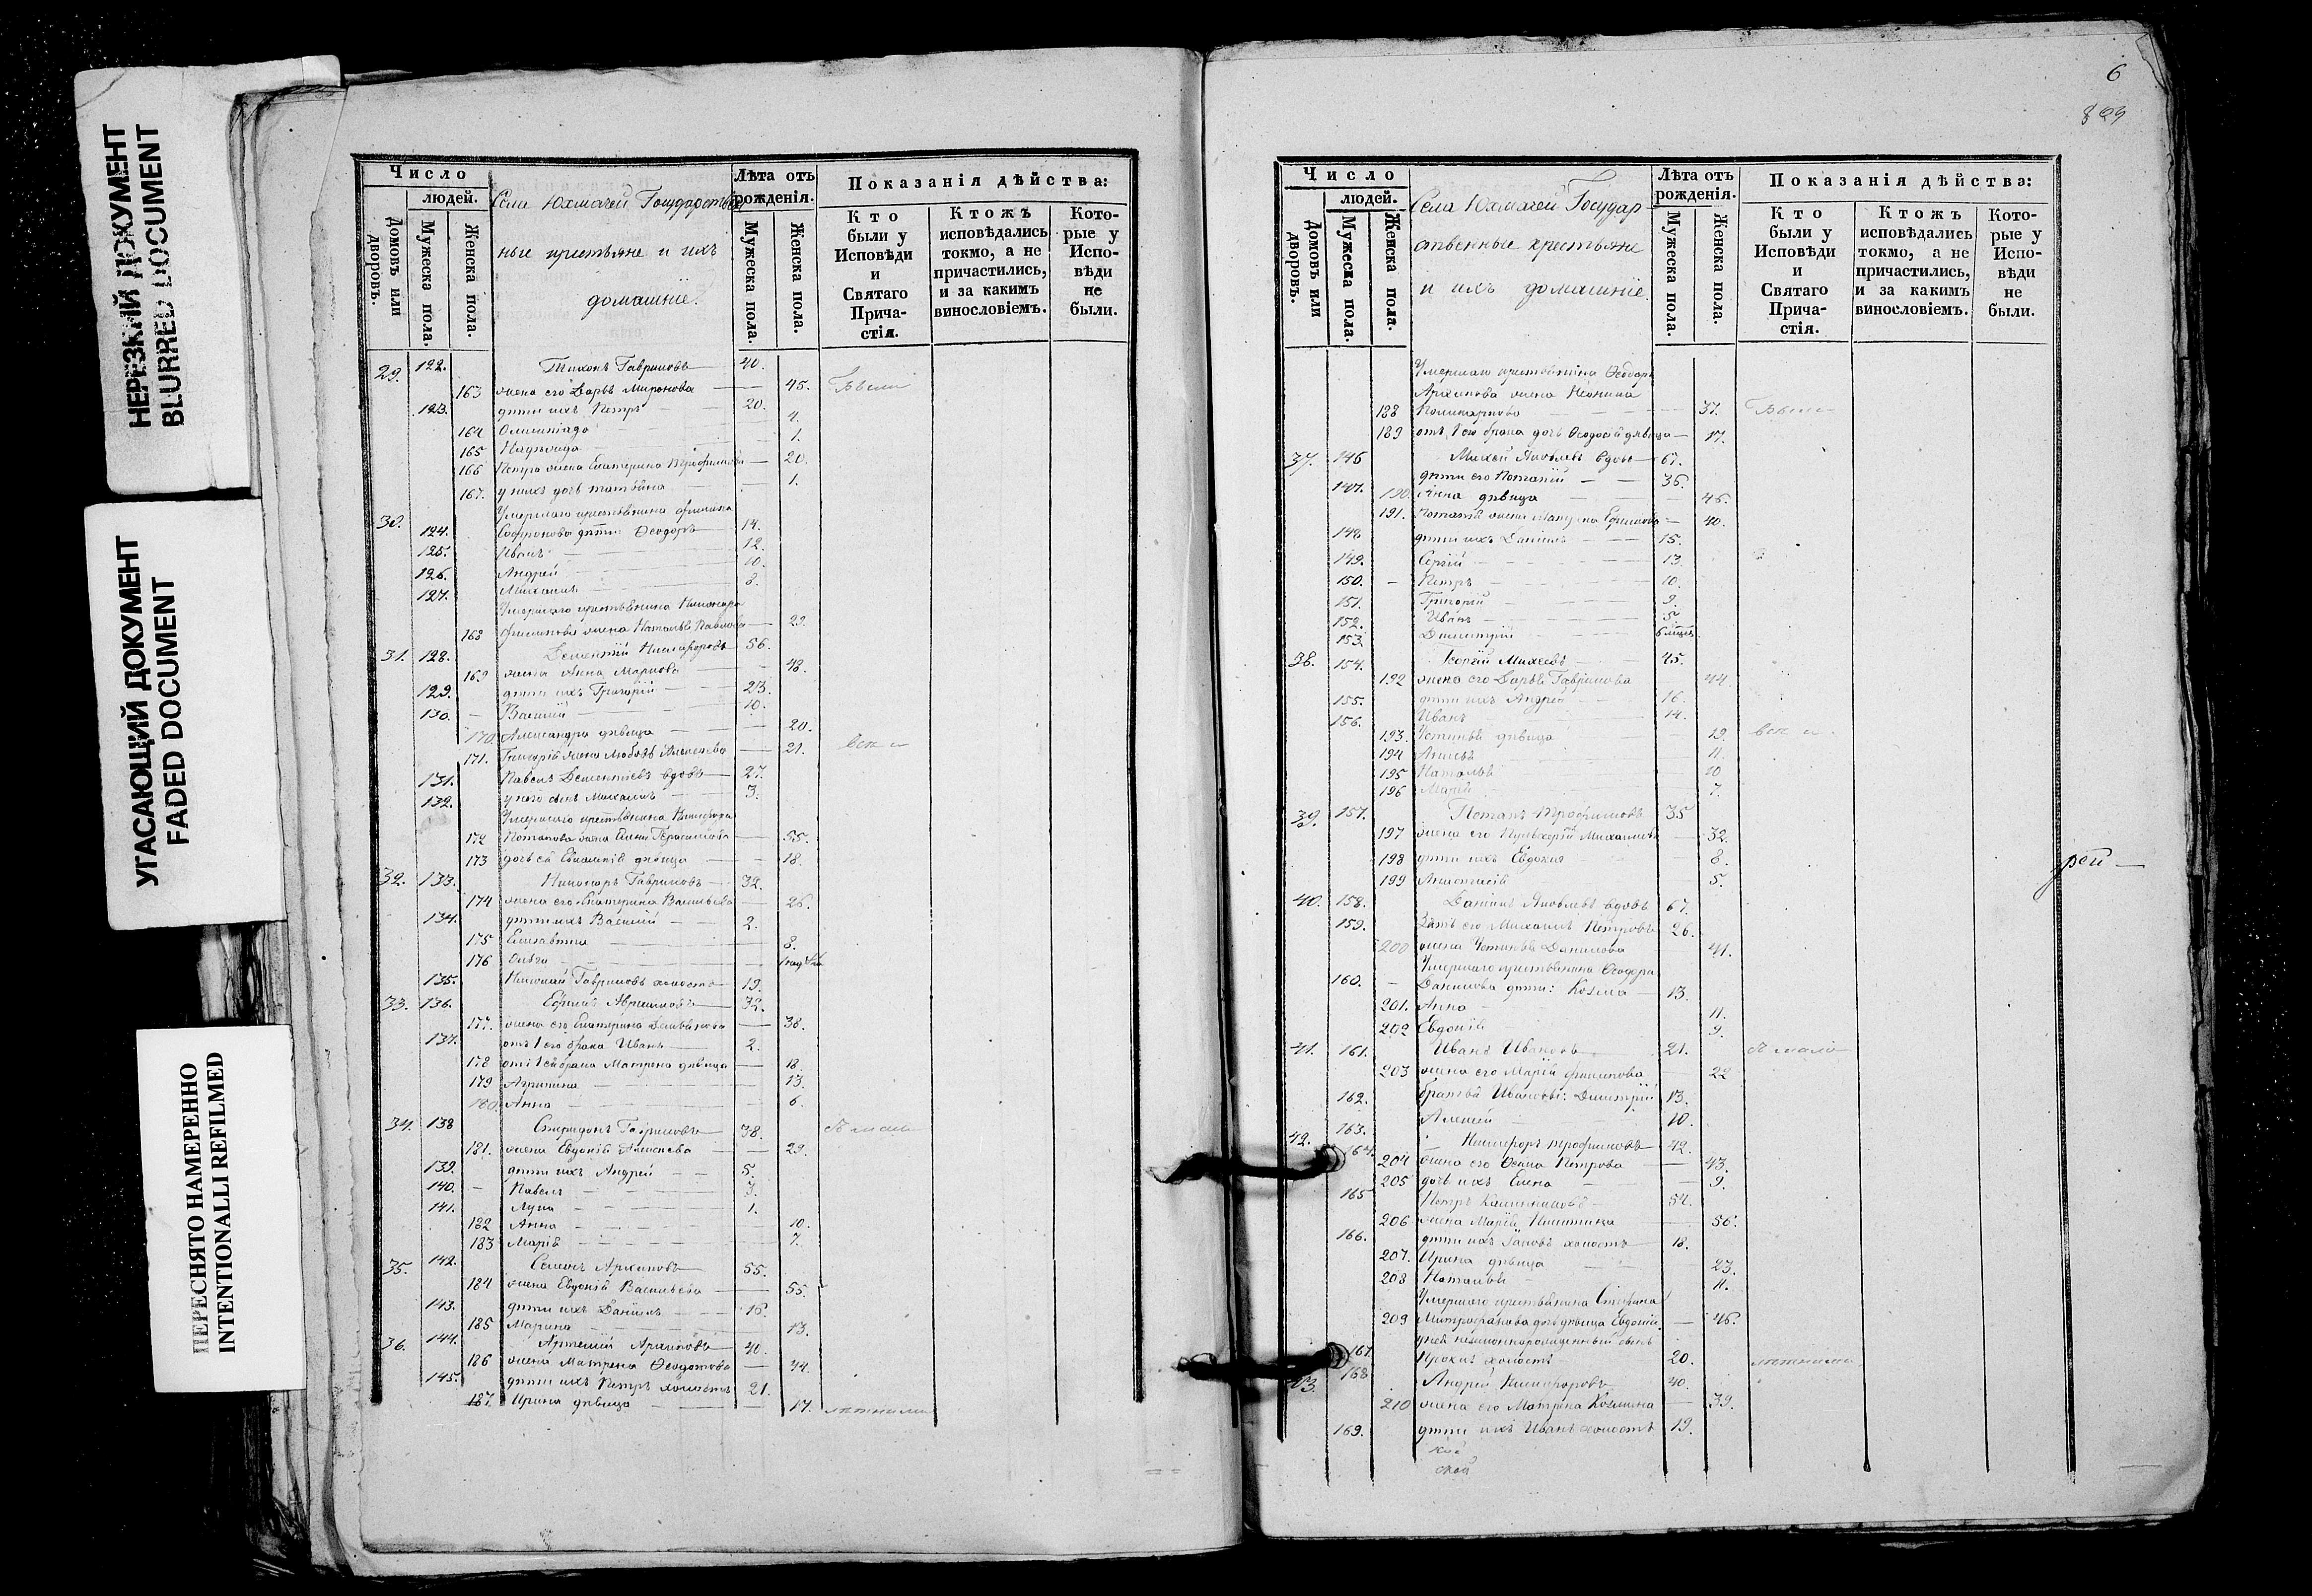 НЕРЕЗКИЙ ДОКУМЕНТ
BLURRED DOCUMENT
УГАСАЮЩИЙ ДОКУМЕНТ
FADED DOCUMENT
ПЕРЕСНЯТО НАМЕРЕННО
INTENTIONALLI REFILMED
Число
людей.
Домовъ или дворовъ.
Мужеска пола.
Женска пола.
Села Юхмачей Государствен
ные крестьяне и ихъ
домашніе.
Лѣта отъ рожденія.
Мужеска пола.
Женска пола.
Показанія дѣйства:
Кто были у Исповѣди и Святаго Прича-стія.
Ктожъ исповѣдались токмо, а не причастились, и за какимъ винословіемъ.
Кото-рые у Испо-вѣди не были.
29. 122. Тихонъ Гавриловъ 40.
163 жена его Дарья Миронова 45. Были
123. дѣти ихъ Петръ 20.
164 Олимпіада 4.
165 Надежда 1.
166 Петра жена Екатерина Трофимова 20.
167. у нихъ дочь Татьяна 1.
30. Умершаго крестьянина
124. Софронова дѣти: Ѳеодоръ 14.
125. Иванъ 12.
126. Андрей 10.
127. Михаилъ 8.
Умершаго крестьянина
168 Филипова жена Наталья Павлова 29.
31. 128. Дементій Никифоровъ 56.
169 жена Анна Маркова 48.
129. дѣти ихъ Григорій 23.
130. Василій 10.
170. Александра дѣвица 20.
171. Григорій жена Любовь Алексеева 21.
131. Павелъ Дементьевъ вдовъ 27.
132. у него сынъ Михаилъ 3.
Умершаго крестьянина Никифора
172 Потапова жена Елена Герасимова 55.
173 дочь ея дѣвица 18.
32. 133. Никаноръ Гавриловъ 32.
174 жена его Екатерина Васильева 26.
134. дѣти ихъ Василій 2.
175 Елисавета 8.
176 Ольга
135. Николай Гавриловъ холостъ 19.
33. 136. Ефимъ 32.
177. жена его Екатерина 38.
137. отъ 1 его брака Иванъ 2.
178 отъ 1 ея брака Матрена дѣвица 18.
179 Агрипина 13.
180. Анна 6.
34. 138 Спиридонъ Гавриловъ 38.
181. жена Евдокія Алексеева 29.
139. дѣти ихъ Андрей 5.
140. Павелъ 3.
141. Лука 1.
182 Анна 10.
183 Марія 7.
35. 142. Семенъ Архиповъ 55.
184 жена Евдокія Васильева 55.
143. дѣти ихъ Даніилъ 16.
185 Марина 13.
36. 144. Артемій Архиповъ 40.
186 жена Матрена Ѳеодотова 44.
145. дѣти ихъ Петръ холостъ 21.
187. Ирина дѣвица 17.
6
829
Число
людей.
Домовъ или дворовъ.
Мужеска пола.
Женска пола.
Села Юхмачей Государ
ственные крестьяне
и ихъ домашніе.
Лѣта отъ рожденія.
Мужеска пола.
Женска пола.
Показанія дѣйства:
Кто были у Исповѣди и Святаго Прича-стія.
Ктожъ исповѣдались токмо, а не причастились, и за какимъ винословіемъ.
Кото-рые у Испо-вѣди не были.
Умершаго крестьянина Ѳеодора
Архипова жена
188 Поликарпова 37. Были
189 отъ 1 го брака дочь Ѳеодосія дѣвица 17.
37. 146 Михей Яковлевъ вдовъ 67.
147. дѣти его Потапій 36.
190. Анна дѣвица 46.
191. Потапія жена Ефимова 40.
148 дѣти ихъ Даніилъ 15.
149. Сергій 13.
150. Петръ 10.
151. Григорій 9.
152. Иванъ 5.
153. Димитрій
38. 154. Георгій Михеевъ 45.
192 жена его Дарья Гаврилова 44.
155. дѣти ихъ Андрей 16.
156. Иванъ 14.
193. Устинья дѣвица 19.
194 Анисья 11.
195 Наталья 10
196 Марія 7.
39. 157. Потапъ Трофимовъ 35
197 жена его Пульхерія Михаилова 32.
198 дѣти ихъ Евдокія 8.
199 Анастасія 5.
рей
40. 158. Даніилъ Яковлевъ вдовъ 67.
159. Зять его Михаилъ Петровъ 26.
200 жена Устинья Данилова 41.
Умершаго крестьянина Ѳеодора
160. Данилова дѣти: Козма 13.
201. Анна 11.
202 Евдокія 9.
41. 161. Иванъ Ивановъ 21.
203 жена его Марія Филипова 22
162. братья Ивановы: Димитрій 13.
163. Алексій 10.
42. 164. Никифоръ Трофимовъ 42.
204 жена его Ѳекла Петрова 43.
205 дочь ихъ Елена 9.
165 Петръ 54.
206 жена Марія Никитина 56.
166. дѣти ихъ Іаковъ холостъ 18.
207. Ирина дѣвица 23.
208 Наталья 11.
Умершаго крестьянина Стефана
209 Митрофанова дочь дѣвица Евдокія 46.
у ней незаконнорожденный сынъ
167. Прохоръ холостъ 20.
43. 168 Андрей Никифоровъ 40.
210 жена его Матрена Козмина 39.
169. дѣти ихъ Иванъ холостъ 19.